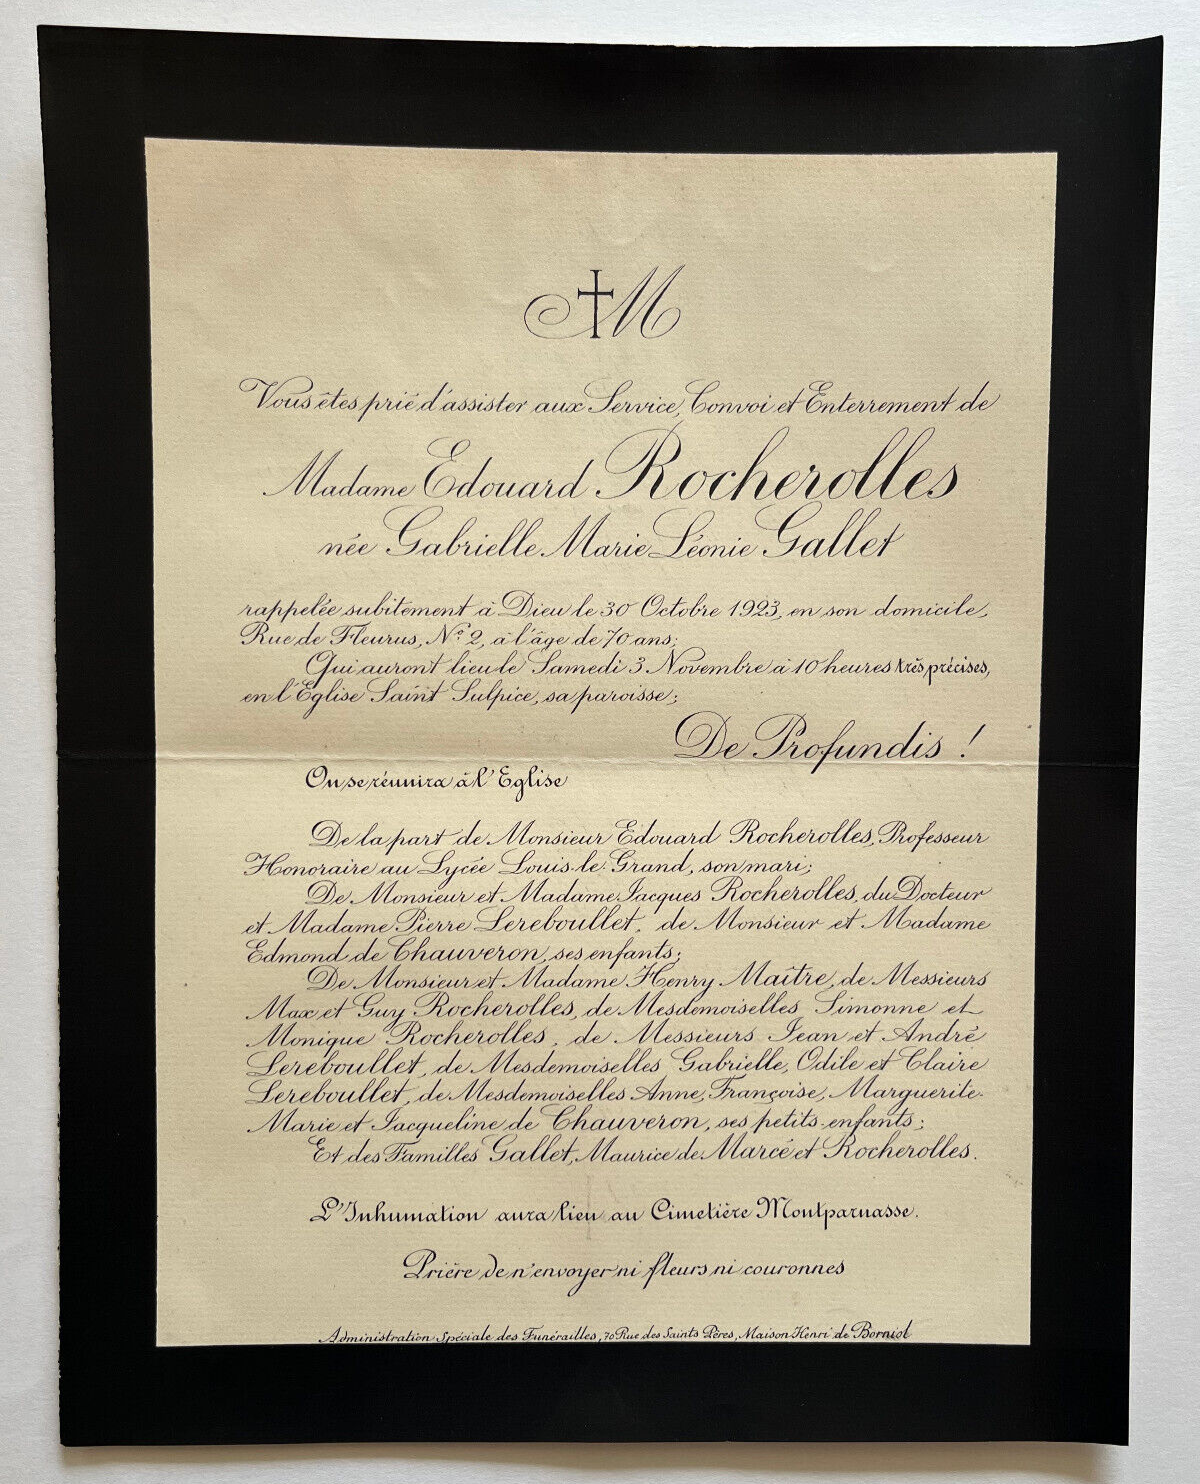 M
Vous êtes prié d'assister aux Service, Convoi et Enterrement de
Madame Edouard Rocherolles
née Gabrielle Marie Léonie Gallet
rappelée subitement à Dieu le 30 Octobre 1923, en son domicile,
Rue de Fleurus, N.º 2, à l'âge de 70 ans;
Qui auront lieu le Samedi 3 Novembre à 10 heures très précises,
en l'Eglise Saint Sulpice, sa paroisse;
De Profundis !
On se réunira à l'Eglise
De la part de Monsieur Edouard Rocherolles, Professeur
Honoraire au Lycée Louis-le-Grand, son mari;
De Monsieur et Madame Jacques Rocherolles, du Docteur
et Madame Pierre Lereboullet, de Monsieur et Madame
Edmond de Chauveron, ses enfants;
De Monsieur et Madame Henry Maître, de Messieurs
Max et Guy Rocherolles, de Mesdemoiselles Simonne et
Monique Rocherolles, de Messieurs Jean et André
Lereboullet, de Mesdemoiselles Gabrielle, Odile et Claire
Lereboullet, de Mesdemoiselles Anne, Françoise, Marguerite-
Marie et Jacqueline de Chauveron, ses petits-enfants;
Et des Familles Gallet, Maurice de Marcé et Rocherolles.
L'Inhumation aura lieu au Cimetière Montparnasse.
Prière de n'envoyer ni fleurs ni couronnes
Administration Spéciale des Funérailles, 70 Rue des Saints Pères, Maison Henri de Borniol